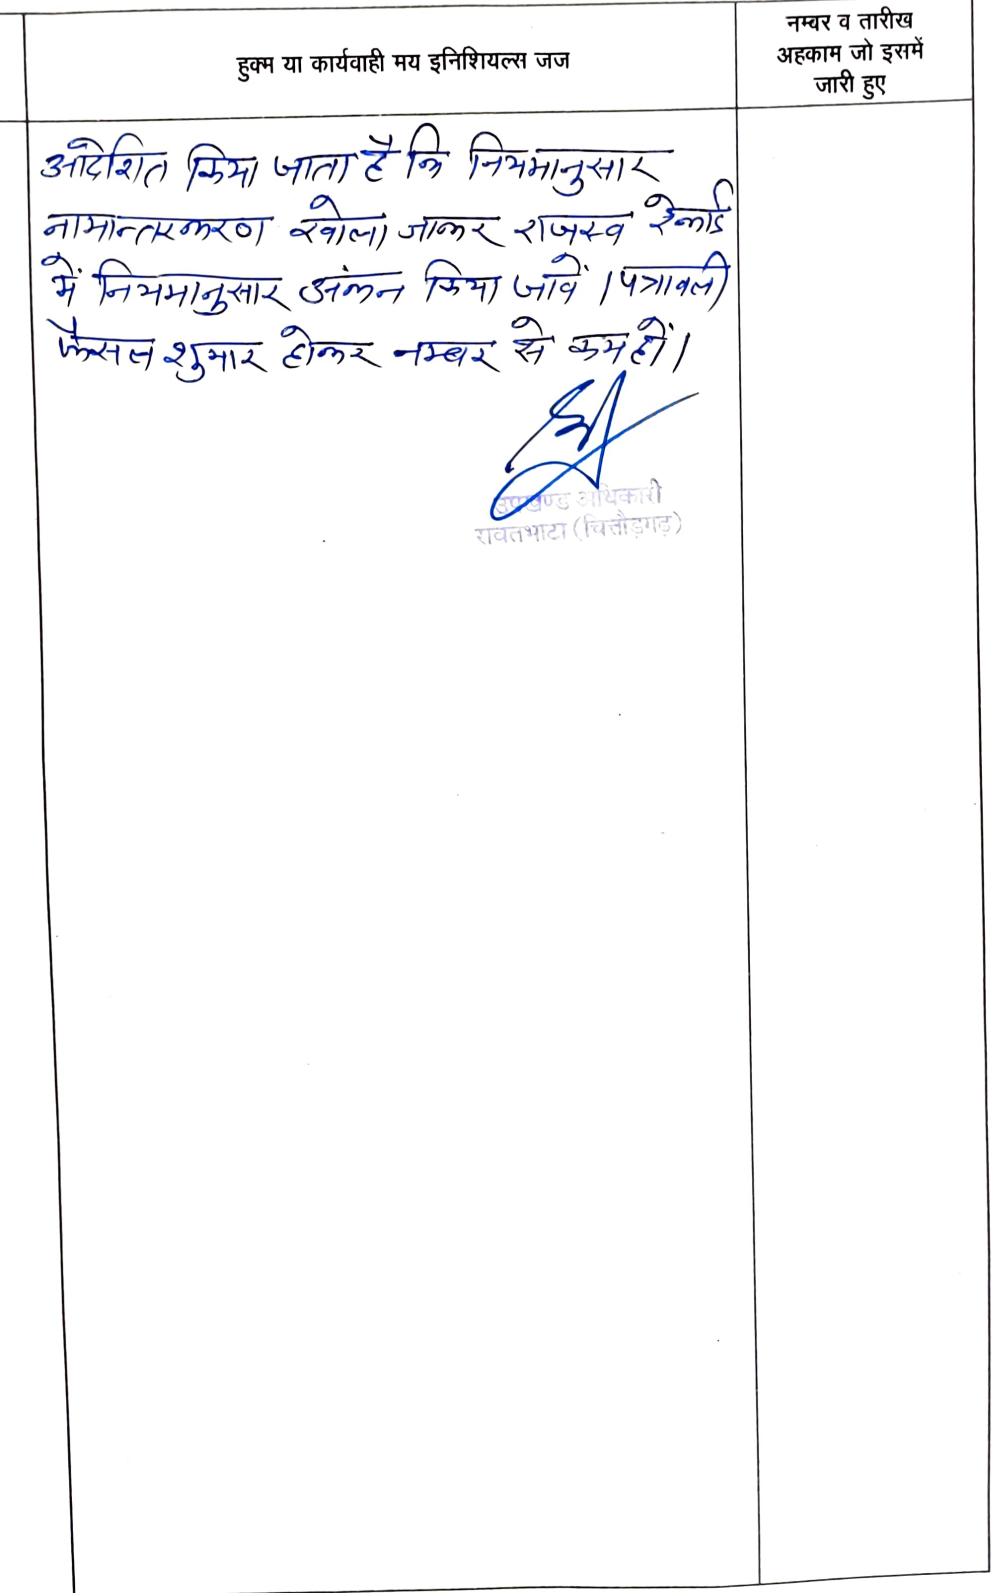 हुक्म या कार्यवाही मय इनिशियल्स जज
नम्बर व तारीख
अहकाम जो इसमें
जारी हुए
आदेशित किया जाता है कि नियमानुसार
नामान्तरकरण खोला जाकर राजस्व रेकार्ड
में नियमानुसार अंकन किया जावें । पत्रावली
फैसल शुमार होकर नम्बर से कम हों।
उपखण्ड अधिकारी
रावतभाटा (चित्तौड़गढ़)